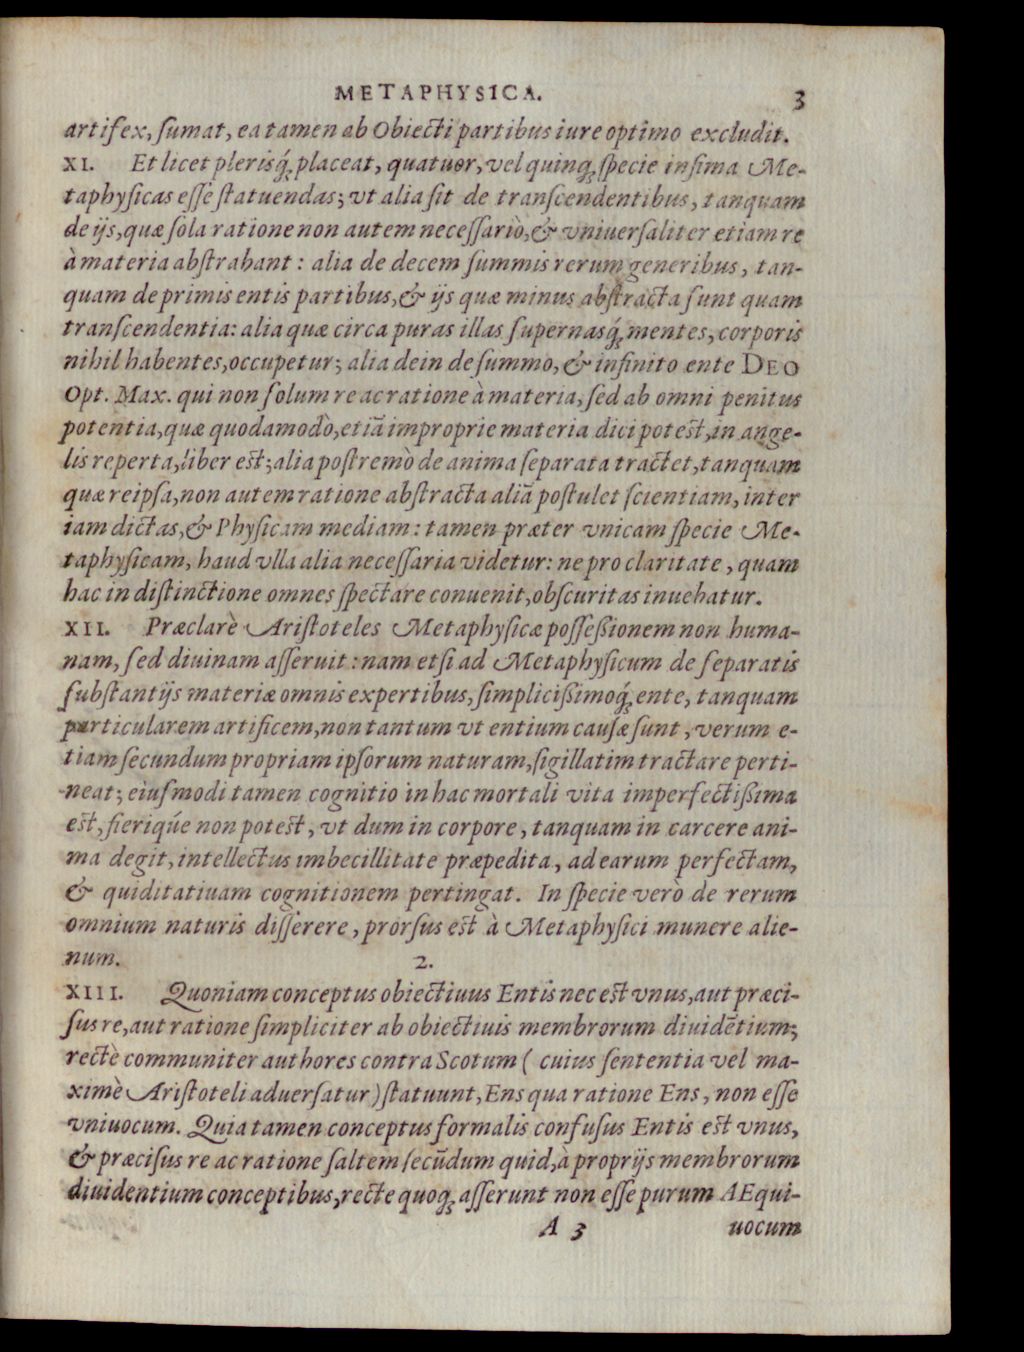 METAPHYSICA. 3
artifex, sumat, ea tamen ab Obiecti partibus iure optimo excludit.
XI. Et licet plerisq́; placeat, quatuor, vel quinq; specie infima Me-
taphysicas esse statuendas; vt alia sit de transcendentibus, tanquam
de ijs, quæ sola ratione non autem necessariò, & vniuersaliter etiam re
à materia abstrahant: alia de decem summis rerum generibus, tan-
quam de primis entis partibus, & ijs quæ minus abstracta sunt quam
transcendentia: alia quæ circa puras illas supernasq́; mentes, corporis
nihil habentes, occupetur; alia dein de summo, & infinito ente DEO
Opt. Max. qui non solum re ac ratione à materia, sed ab omni penitus
potentia, quæ quodamodò, etiã improprie materia dici potest, in ange-
lis reperta, liber est; alia postremò de anima separata tractet, tanquam
quæ reipsa, non autem ratione abstracta aliã postulet scientiam, inter
iam dictas, & Physicam mediam: tamen præter vnicam specie Me-
taphysicam, haud vlla alia necessaria videtur: ne pro claritate, quam
hac in distinctione omnes spectare conuenit, obscuritas inuehatur.
XII. Præclarè Aristoteles Metaphysicæ possessionem non huma-
nam, sed diuinam asseruit: nam etsi ad Metaphysicum de separatis
substantijs materiæ omnis expertibus, simplicissimoq́; ente, tanquam
particularem artificem, non tantum vt entium causæ sunt, verum e-
tiam secundum propriam ipsorum naturam, sigillatim tractare perti-
neat; eiusmodi tamen cognitio in hac mortali vita imperfectissima
est, fieriqúe non potest, vt dum in corpore, tanquam in carcere ani-
ma degit, intellectus imbecillitate præpedita, ad earum perfectam,
& quiditatiuam cognitionem pertingat. In specie verò de rerum
omnium naturis disserere, prorsus est à Metaphysici munere alie-
num. 2.
XIII. Quoniam conceptus obiectiuus Entis nec est vnus, aut præci-
sus re, aut ratione simpliciter ab obiectiuis membrorum diuidẽtium;
rectè communiter authores contra Scotum ( cuius sententia vel ma-
ximè Aristoteli aduersatur ) statuunt, Ens qua ratione Ens, non esse
vniuocum. Quia tamen conceptus formalis confusus Entis est vnus,
& præcisus re ac ratione saltem secũdum quid, à proprijs membrorum
diuidentium conceptibus, recte quoq; asserunt non esse purum AEqui-
A 3 uocum